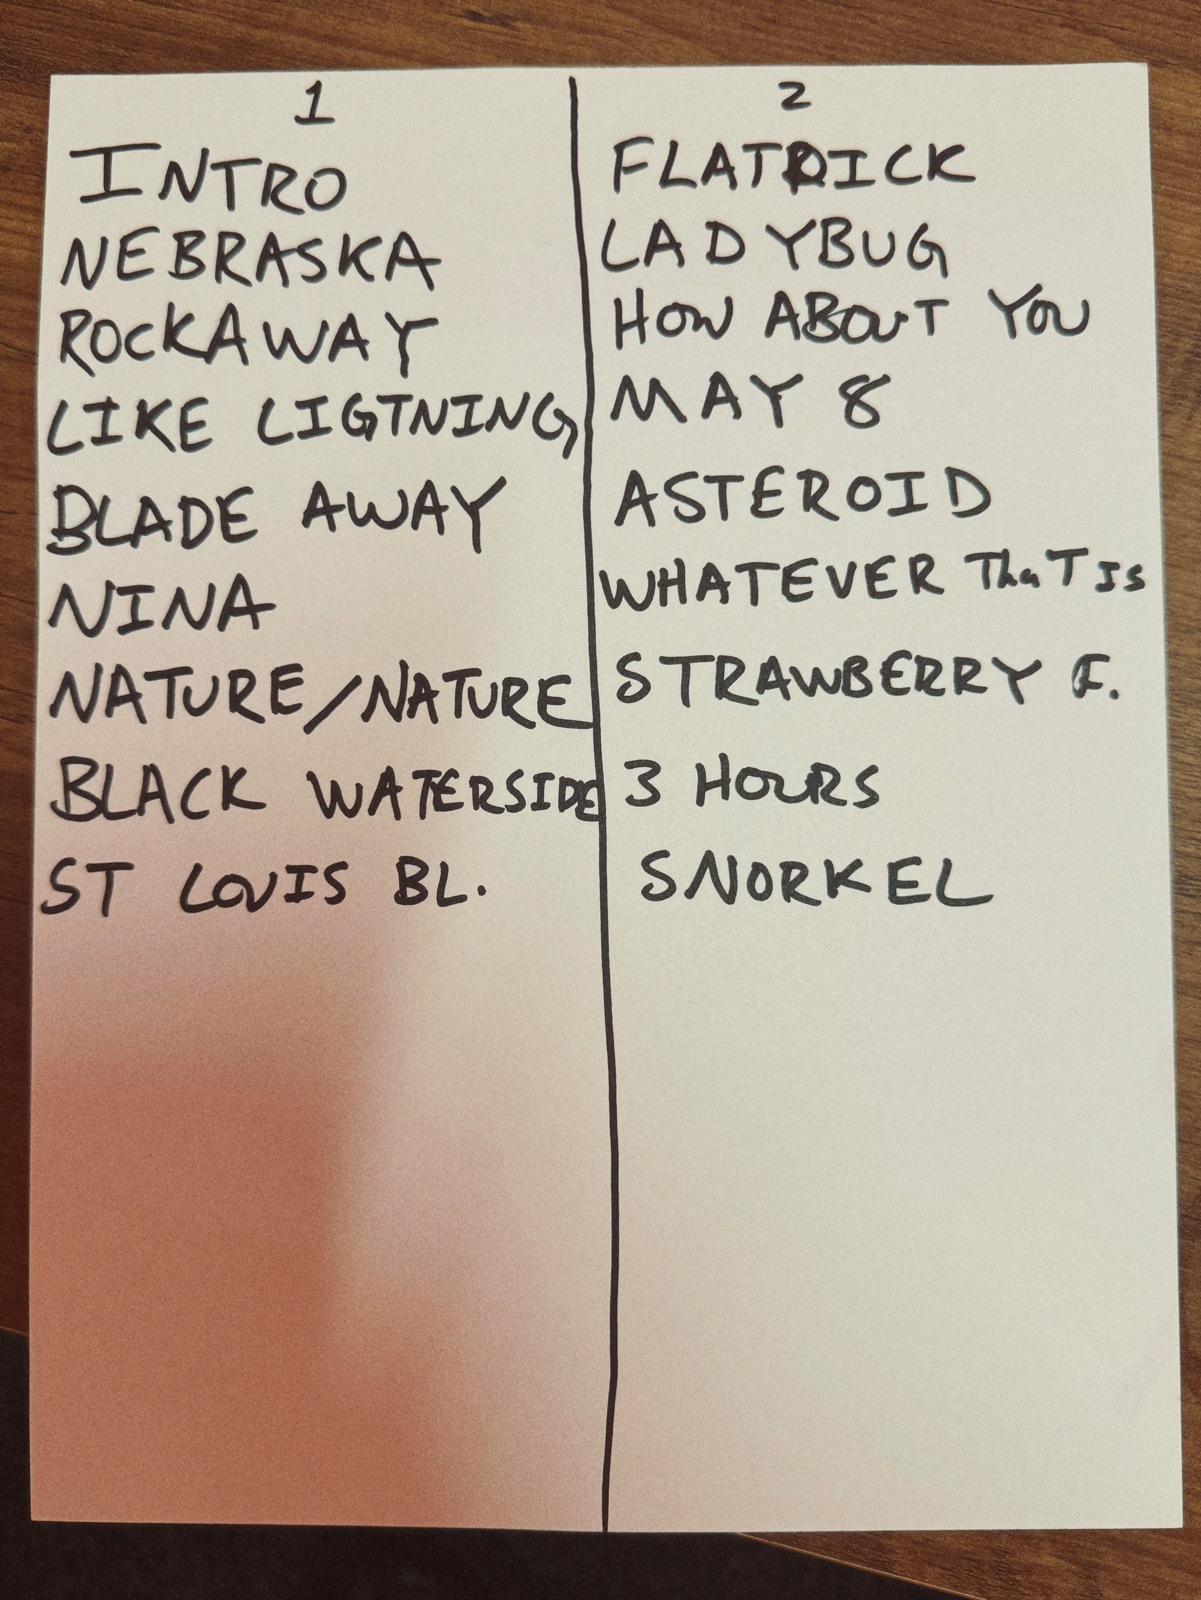 1
INTRO
NEBRASKA
ROCKAWAY
LIKE LIGTNING
BLADE AWAY
NINA
NATURE/NATURE
BLACK WATERSIDE
ST LOUIS BL.
2
FLATPICK
LADYBUG
HOW ABOUT YOU
MAY 8
ASTEROID
WHATEVER ThaT IS
STRAWBERRY F.
3 HOURS
SNORKEL